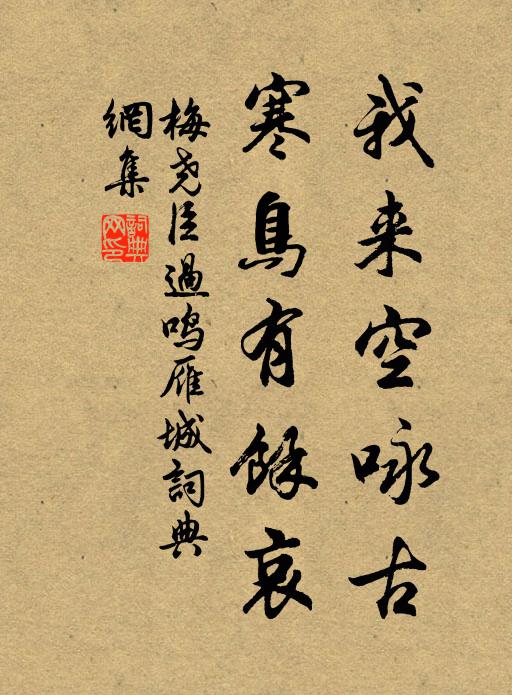 我来空咏古
寒鳥有餘哀
梅尧臣過鳴雁城詞典
網集
詞典网印